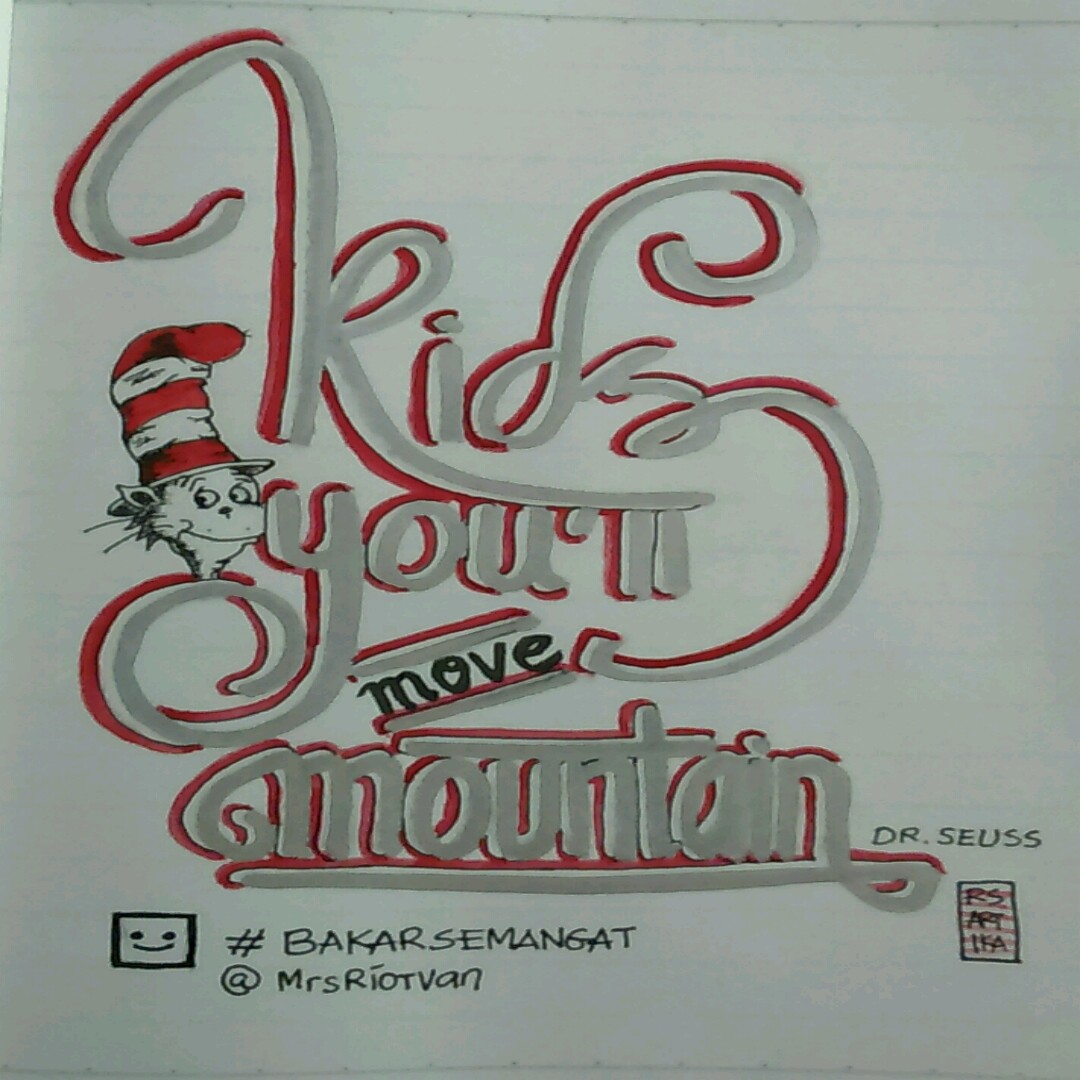 Kids
you'll
move
mountain
DR. SEUSS
RS
ART
IKA
# BAKARSEMANGAT
@ MrsRiotvan